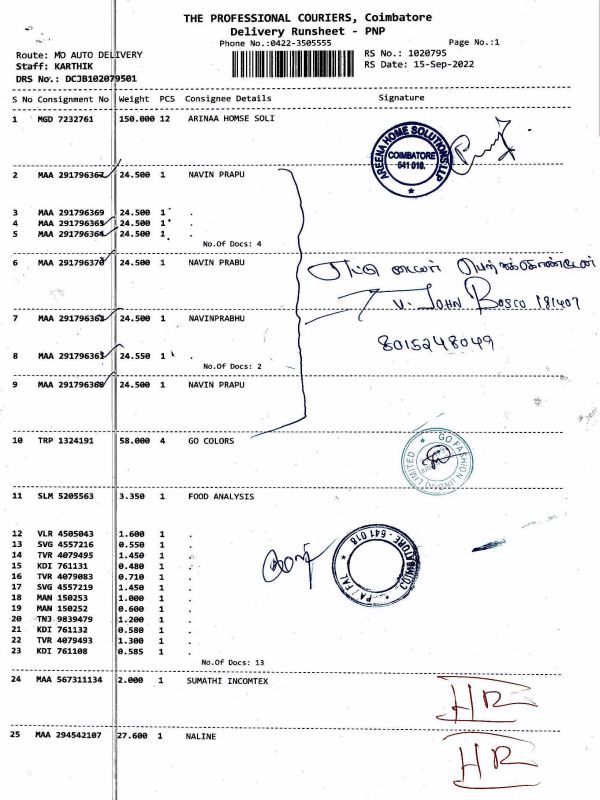 THE PROFESSIONAL COURIERS, Coimbatore
Delivery Runsheet - PNP
Phone No.:0422-3505555 Page No.:1
Route: MO AUTO DELIVERY RS No.: 1020795
Staff: KARTHIK RS Date: 15-Sep-2022
DRS No.: DCJB102079501
S No Consignment No Weight PCS Consignee Details Signature
1 MGD 7232761 150.000 12 ARINAA HOMSE SOLI
AREENA HOME SOLUTIONS LLP
COIMBATORE
641 018.
2 MAA 291796367 24.500 1 NAVIN PRAPU
3 MAA 291796369 24.500 1 .
4 MAA 291796365 24.500 1 .
5 MAA 291796364 24.500 1 .
No.Of Docs: 4
6 MAA 291796370 24.500 1 NAVIN PRABU
எட்டு பெற்றுக்கொண்டேன்
V. JOHN BOSCO 181407
7 MAA 291796362 24.500 1 NAVINPRABHU
8015248049
8 MAA 291796363 24.550 1 .
No.Of Docs: 2
9 MAA 291796360 24.500 1 NAVIN PRAPU
10 TRP 1324191 58.000 4 GO COLORS
GO FASHION (INDIA) LIMITED
11 SLM 5205563 3.350 1 FOOD ANALYSIS
12 VLR 4505043 1.600 1 .
13 SVG 4557216 0.550 1 .
14 TVR 4079495 1.450 1 .
15 KDI 761131 0.480 1 .
16 TVR 4079083 0.710 1 .
17 SVG 4557219 1.450 1 .
18 MAN 150253 1.000 1 .
19 MAN 150252 0.600 1 .
20 TNJ 9839479 1.200 1 .
21 KDI 761132 0.580 1 .
22 TVR 4079493 1.300 1 .
23 KDI 761108 0.585 1 .
No.Of Docs: 13
24 MAA 567311134 2.000 1 SUMATHI INCOMTEX
HR
25 MAA 294542107 27.600 1 NALINE
HR